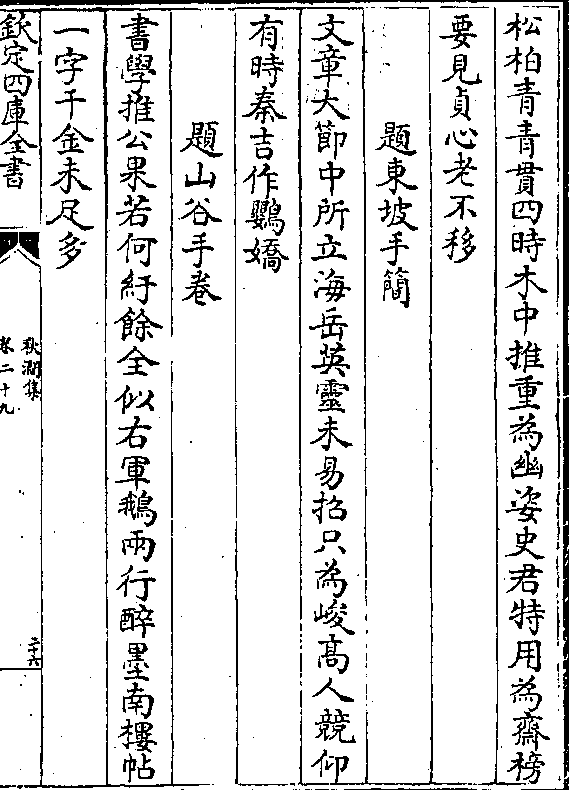 松柏青青貫四時木中推重為幽姿史君特用為齋榜
要見貞心老不移
題東坡手簡
文章大節中所立海岳英靈未易招只為峻髙人競仰
有時秦吉作鸚嬌
題山谷手卷
書學推公果若何紆餘全似右軍鵝兩行醉墨南樓帖
一字千金未足多
欽定四庫全書
秋澗集
卷二十九
二十六